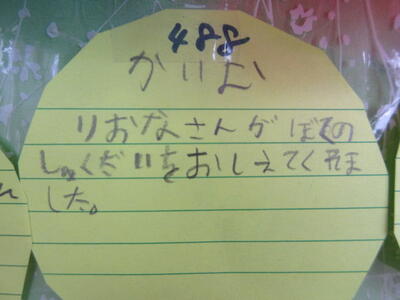 488
かいと
りおなさんがぼくの
しゅくだいをおしえてくれま
した。